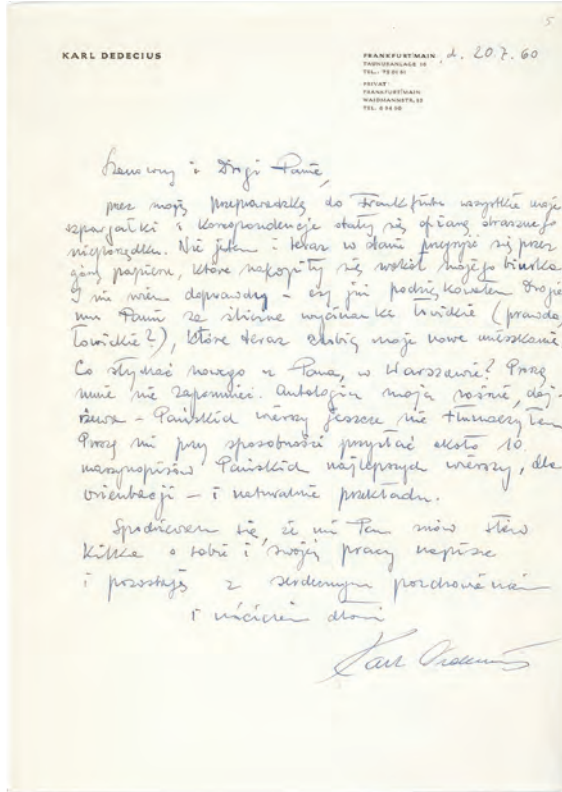 5
KARL DEDECIUS
FRANKFURT/MAIN, d. 20.7.60
TAUNUSANLAGE
TEL.:
PRIVAT:
FRANKFURT/MAIN
TEL.
Szanowny i Drogi Panie,
przez moją przeprowadzkę do Frankfurtu wszystkie moje
szpargałki i korespondencje stały się ofiarą strasznego
nieporządku. Nie jestem i teraz w stanie przegryźć się przez
górę papieru, które nakopiły się wokół mojego biurka
I nie wiem doprawdy – czy już podziękowałem Drogie
mu Panu za śliczne wycinanki łowickie (prawda,
łowickie?), które teraz zdobią moje nowe mieszkanie
Co słychać nowego u Pana, w Warszawie? Proszę
mnie nie zapomnieć. Antologia moja rośnie, doj-
rzewa – Pańskich wierszy jeszcze nie tłumaczyłem
Proszę mi przy sposobności przysłać około 10
maszynopisów Pańskich najlepszych wierszy, dla
orientacji – i naturalnie przekładu.
Spodziewam się, że mi Pan znów słów
kilka o sobie i swojej pracy napisze
i pozostaję z serdecznym pozdrowieniem
i uściskiem dłoni
Karl Dedecius